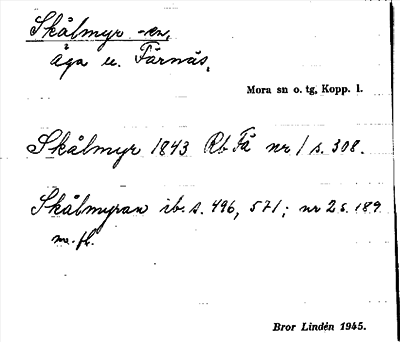 Skålmyr -en,
äga u. Färnäs.
Mora sn o. tg, Kopp. l.
Skålmyr 1843 Rb Fä nr 1 s. 308.
Skålmyran ib. s. 496, 571; nr 2 s. 189
m. fl.
Bror Lindén 1945.